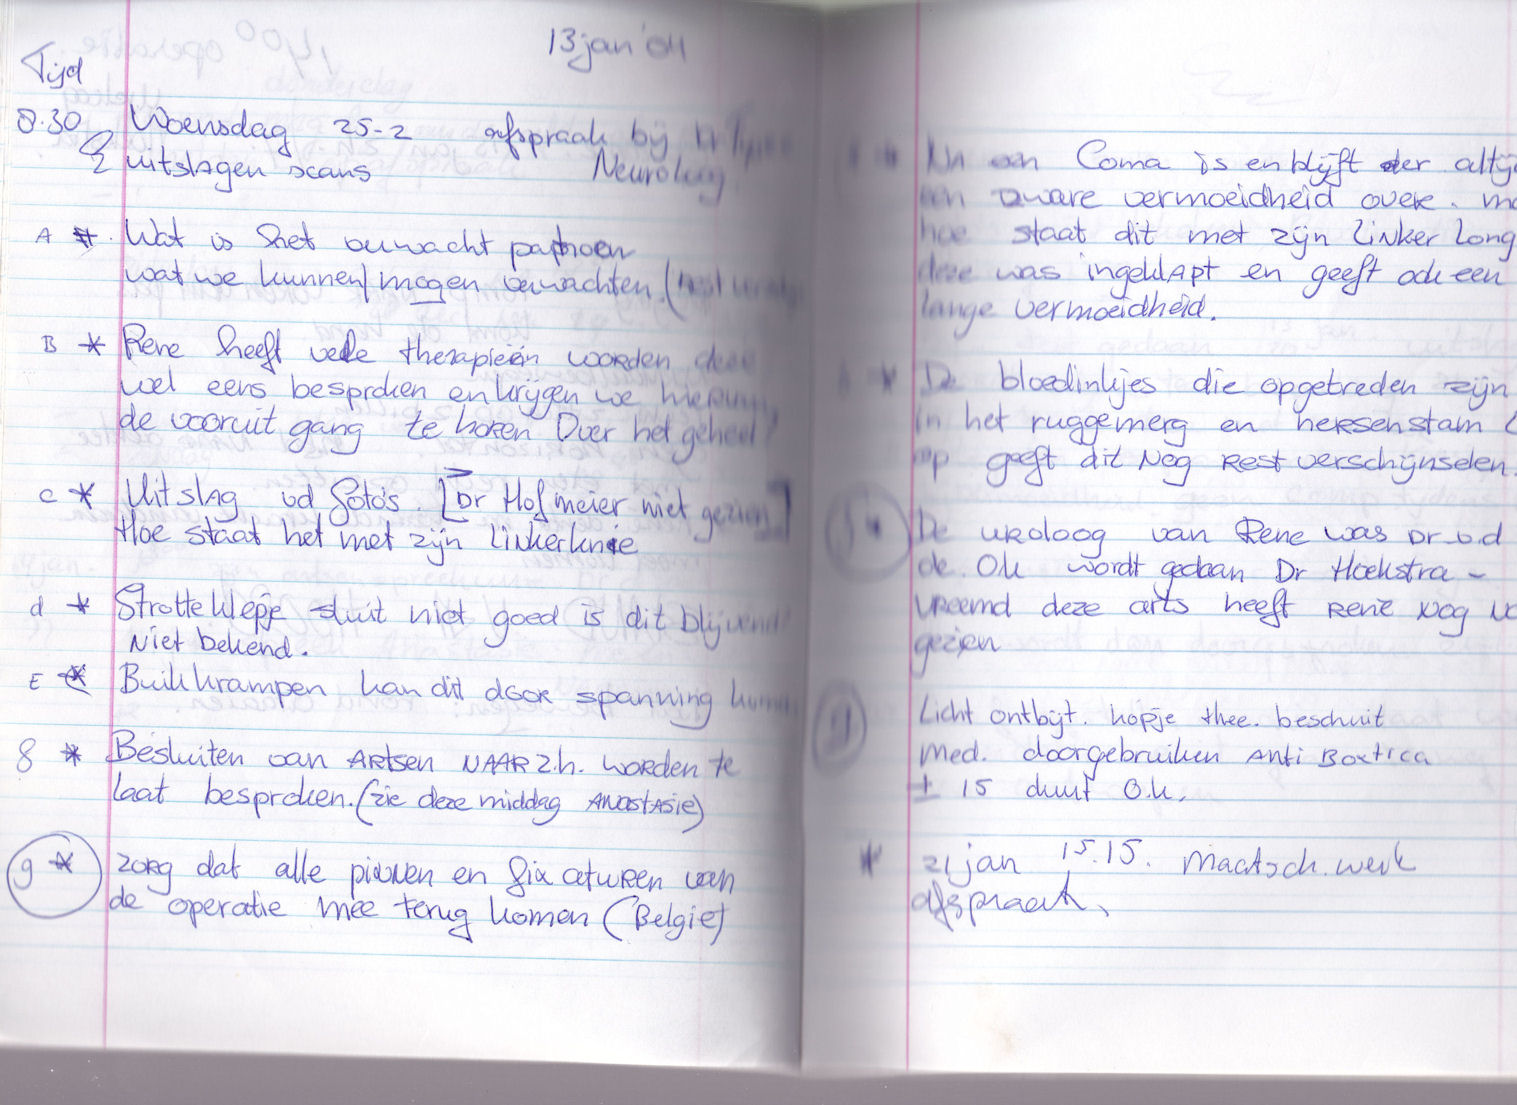 13 jan '04
Tijd
8.30 Woensdag 25-2 afspraak bij Dr
& uitslagen scans Neuroloog
A * Wat is het verwacht patroon
wat we kunnen/mogen verwachten. (Rest
B * Rene heeft vele therapieën worden deze
wel eens besproken en krijgen we hierin
de vooruit gang te horen Over het geheel?
C * Uitslag vd foto's. [Dr Hofmeier niet gezien]
Hoe staat het met zijn linkerknie
d * Strotteklepje sluit niet goed is dit blijvend
Niet bekend.
E * Buikkrampen kan dit door spanning komen
f * Besluiten van Artsen NAAR z.h. worden te
laat besproken. (zie deze middag Anastasie)
g * zorg dat alle pinnen en fixaturen van
de operatie mee terug komen (Belgie)
* Na een Coma is en blijft er altijd
een zware vermoeidheid over.
hoe staat dit met zijn linker long
deze was ingeklapt en geeft ook een
lange vermoeidheid.
* De bloedinkjes die opgetreden zijn
in het ruggemerg en hersenstam
op geeft dit Nog Rest verschijnselen.
* De uroloog van Rene was Dr. v.d
de O.k wordt gedaan Dr Hoekstra -
vreemd deze arts heeft Rene nog
gezien
Licht ontbijt. kopje thee. beschuit
med. doorgebruiken Anti
± 15 duurt O.k.
* 21 jan 15.15. Maatsch. werk
afspraak.